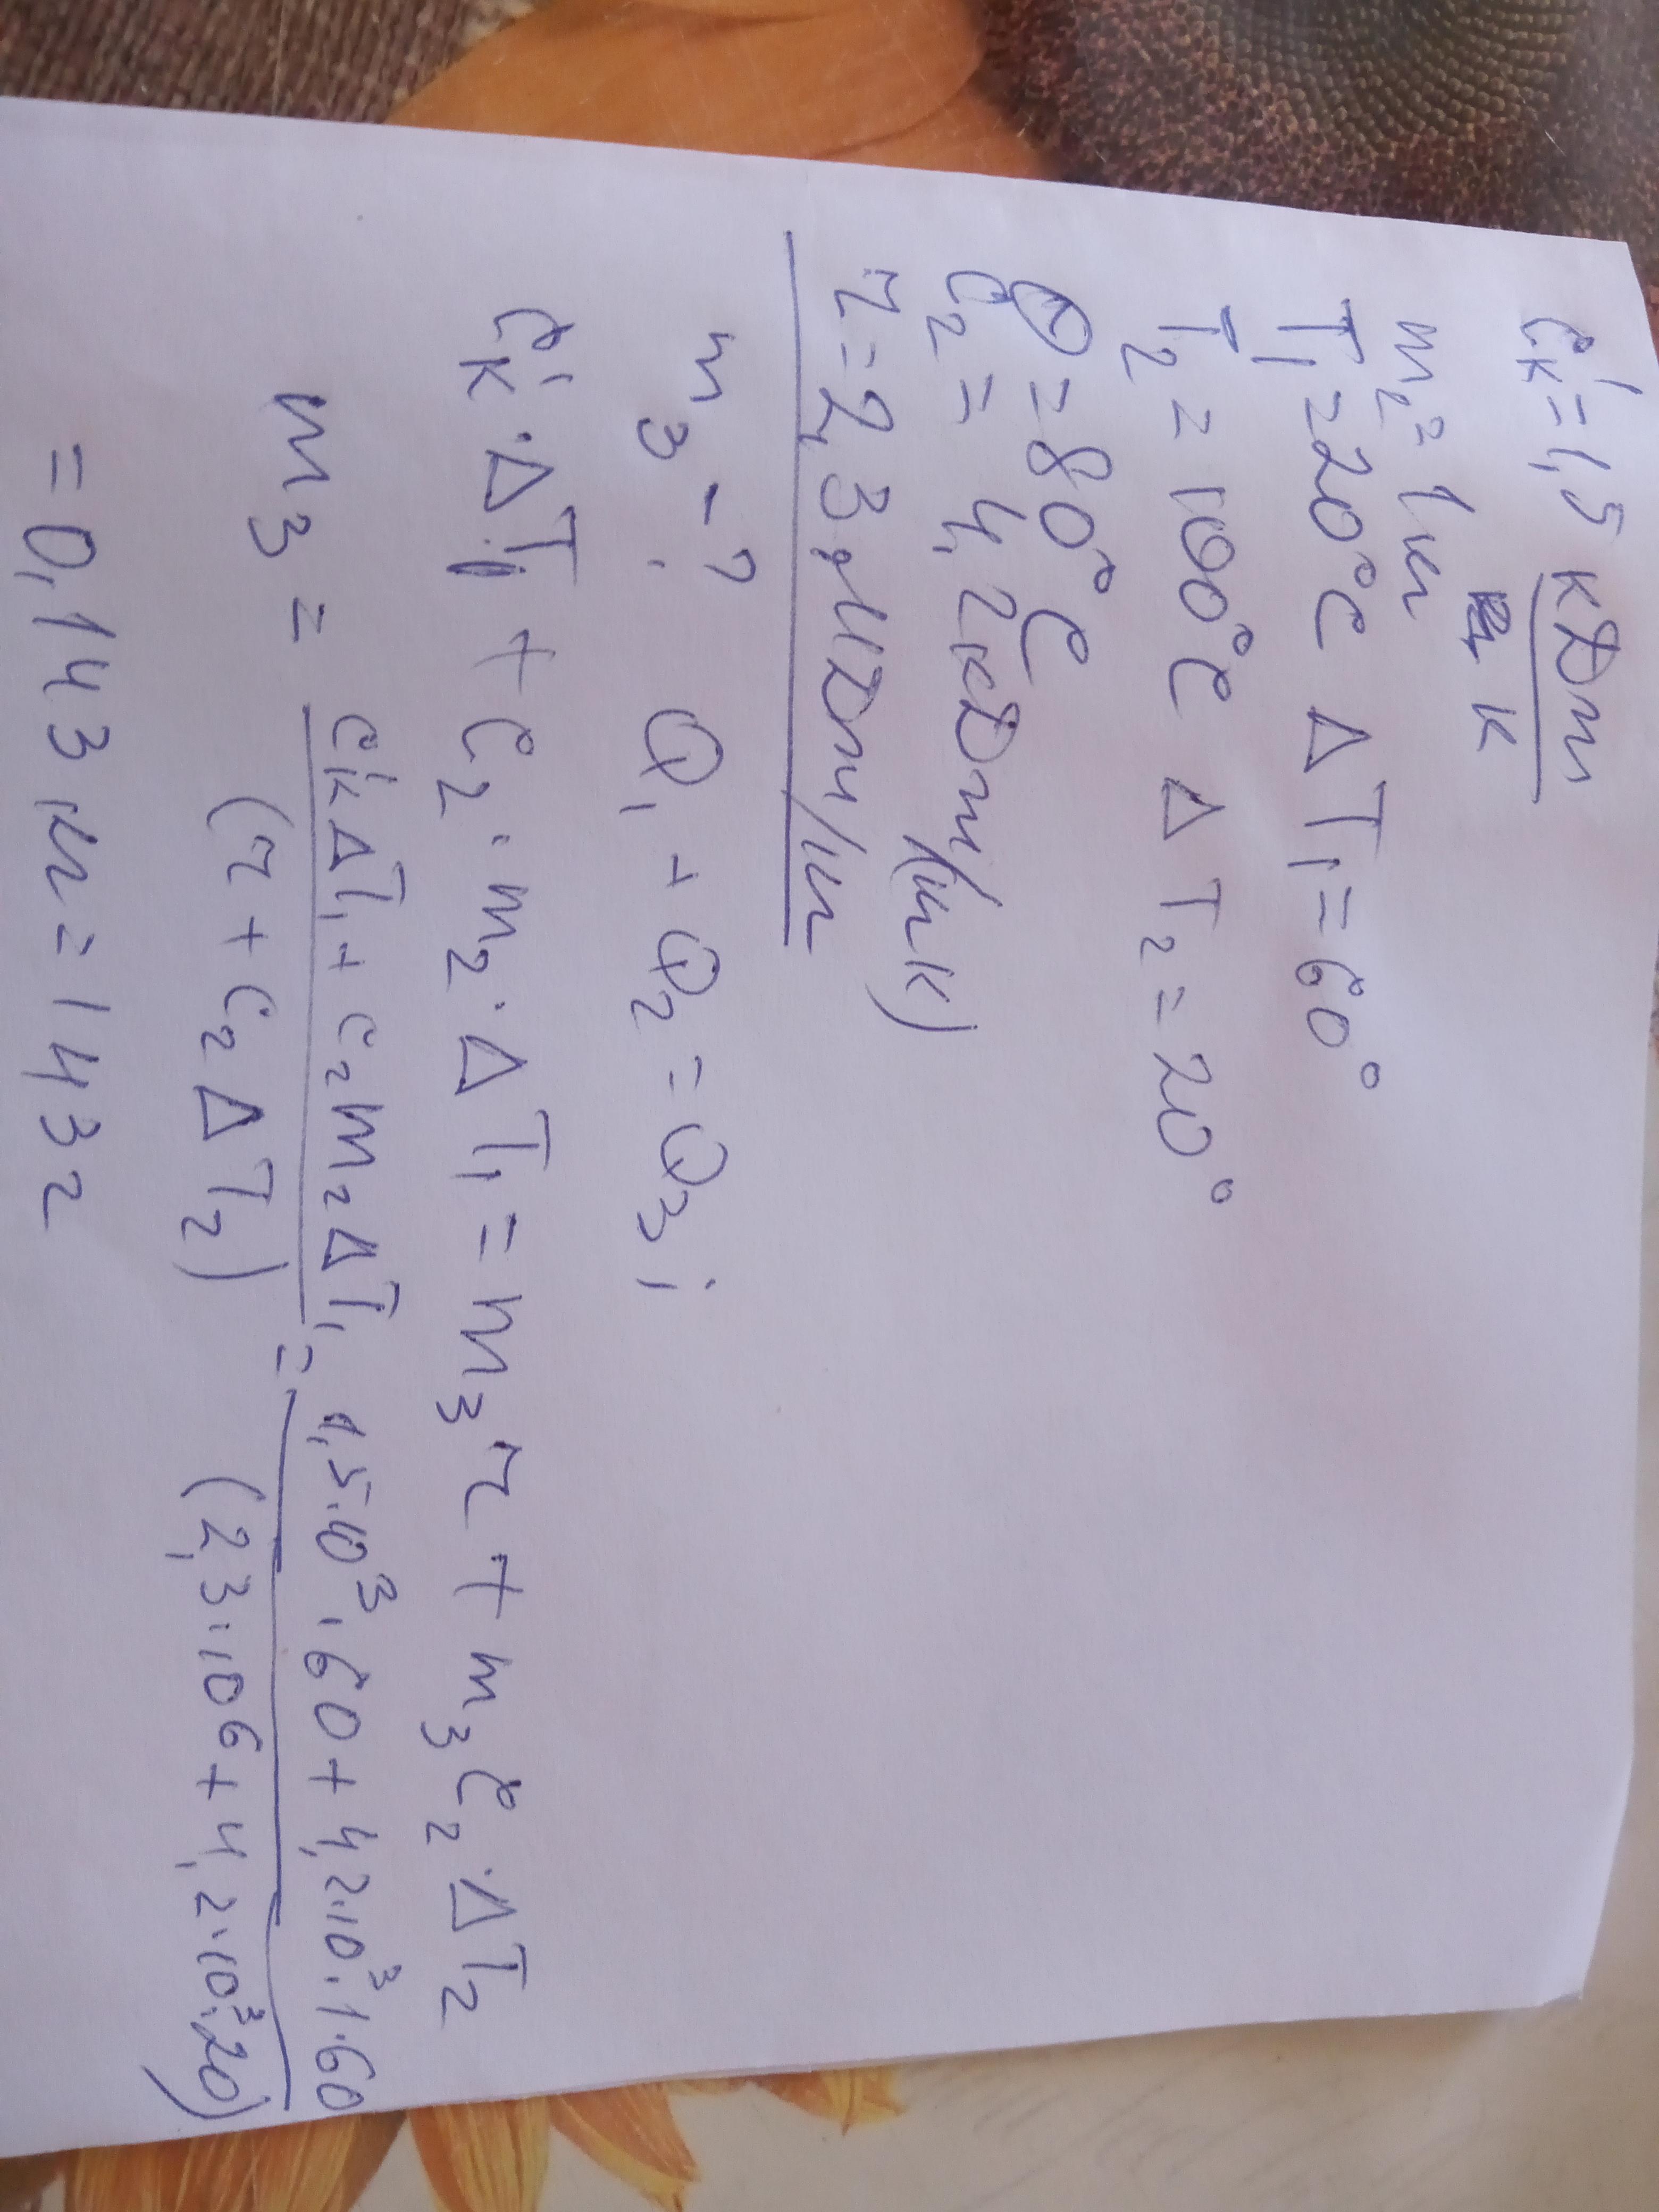 C'к = 1,5 кДж/К
m₂ = 1 кг
T₁ = 20°C ΔT₁ = 60°
T₂ = 100°C ΔT₂ = 20°
Θ = 80°C
C₂ = 4,2 кДж/(кгК)
r = 2,3 МДж/кг
m₃ - ? Q₁ + Q₂ = Q₃;
C'к · ΔT₁ + C₂ · m₂ · ΔT₁ = m₃r + m₃C₂ · ΔT₂
m₃ = (C'кΔT₁ + C₂m₂ΔT₁)/(r + C₂ΔT₂) = (1,5·10³·60 + 4,2·10³·1·60)/(2,3·10⁶ + 4,2·10³·20)
= 0,143 кг = 143 г